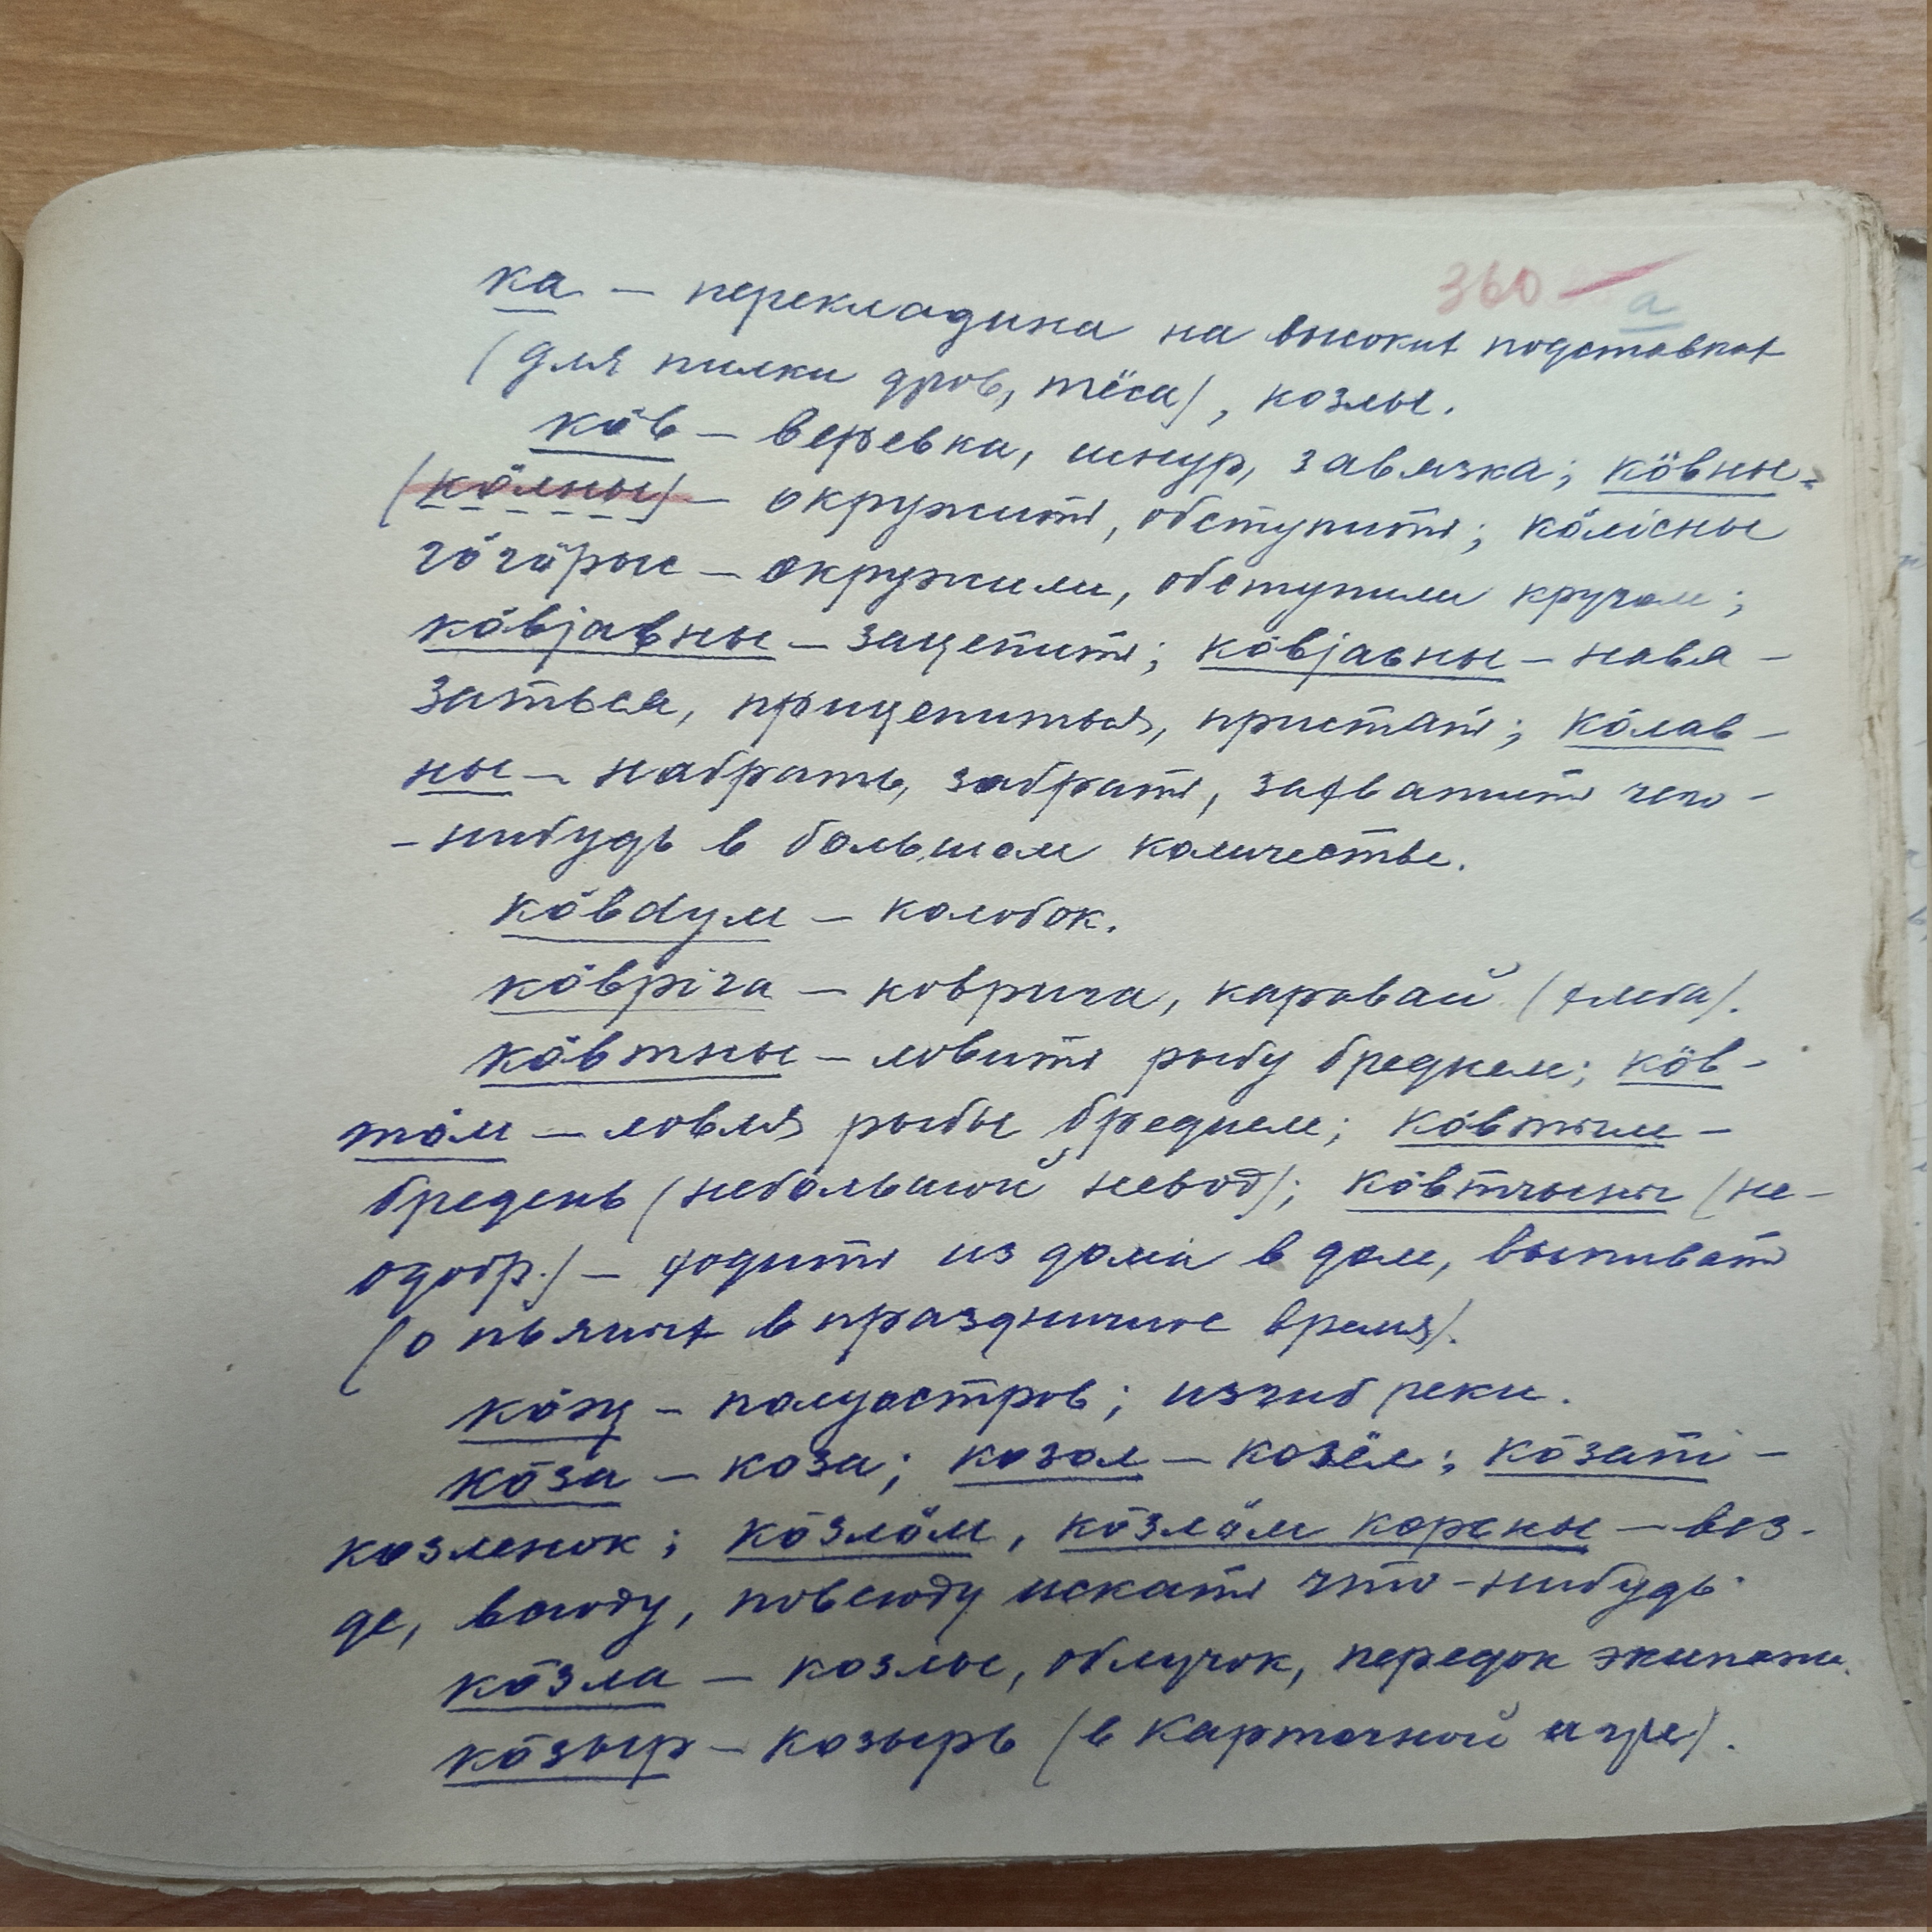 360 а
ка — перекладина на высоких подставках
(для пилки дров, тёса), козлы.
кӧв — веревка, шнур, завязка; кӧвны-
(кӧлны) — окружить, обступить; кӧлісны
гӧгӧрыс — окружили, обступили кругом;
кӧвјавны — зацепить; кӧвјавны — навя-
заться, прицепиться, пристать; кӧлав-
ны — набрать, забрать, захватить чего-
-нибудь в большом количестве.
кӧвdум — колобок.
кӧвріга — коврига, каравай (хлеба).
кӧвтны — ловить рыбу бреднем; кӧв-
тӧм — ловля рыбы бреднем;
бредень (небольшой невод); (не-
одобр.) — ходить из дома в дом, выпивать
(о пьяных в праздничное время).
кӧж — полуостров; изгиб реки.
кӧза — коза; козӧл — козёл; кӧзаті —
козленок; кӧзлӧм, кӧзлӧм корсны — вез-
де, всюду, повсюду искать что-нибудь
кӧзла — козлы, облучок, передок экипажа.
кӧзыр — козырь (в карточной игре).